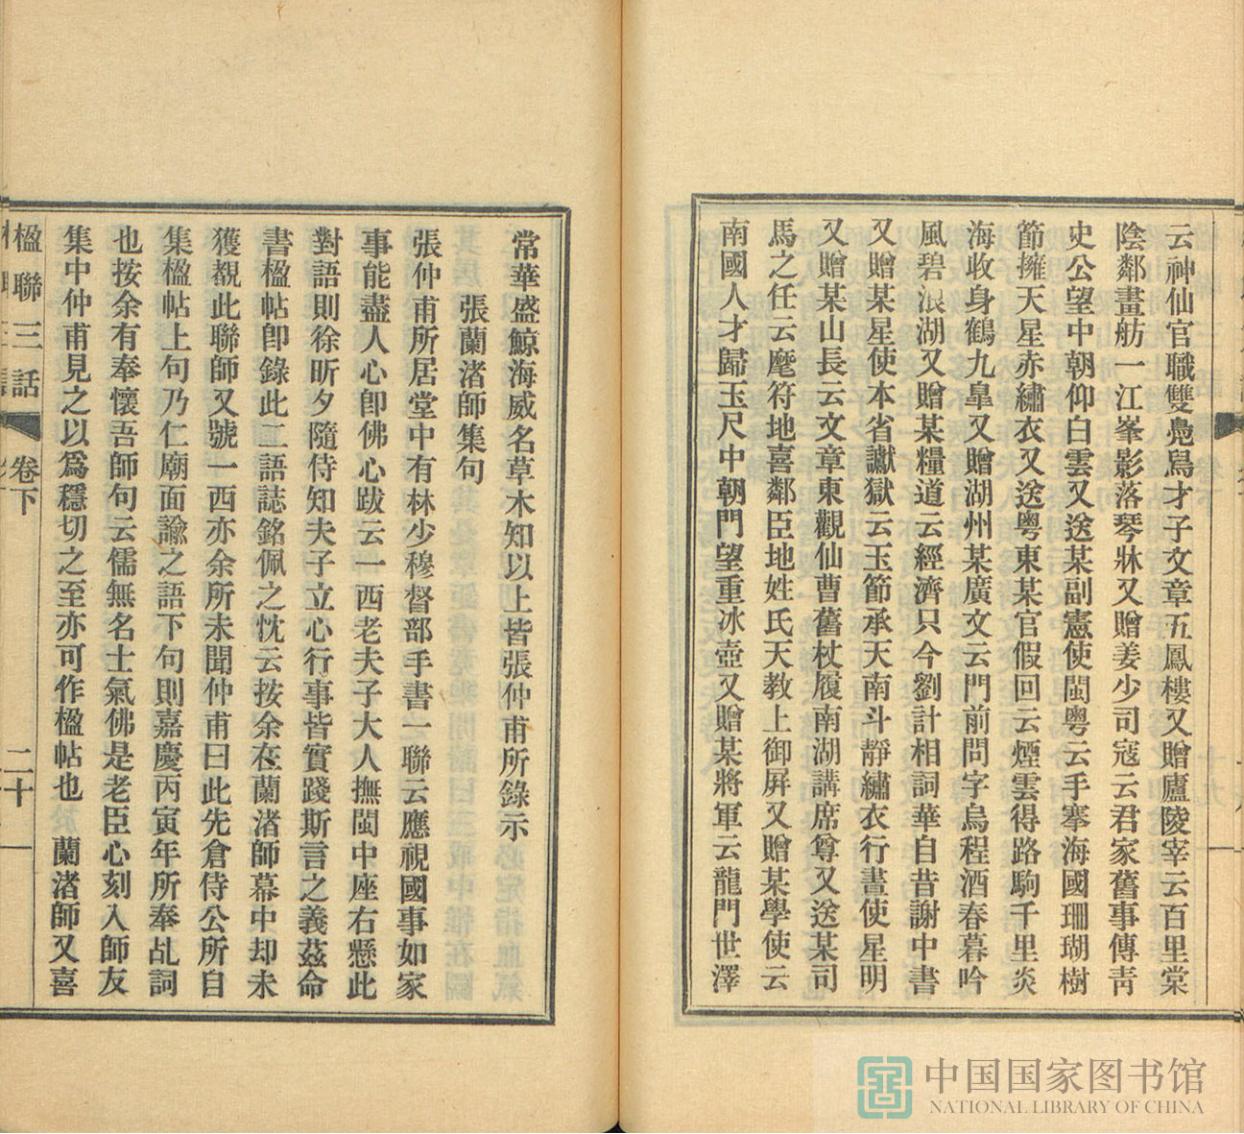 云神仙官職雙鳧舃才子文章五鳳樓又贈廬陵宰云百里棠
陰鄰畫舫一江峯影落琴牀又贈姜少司寇云君家舊事傳靑
史公望中朝仰白雲又送某副憲使閩粤云手搴海國珊瑚樹
節擁天星赤繡衣又送粤東某官假回云煙雲得路駒千里炎
海收身鶴九皐又贈湖州某廣文云門前問字烏程酒春暮吟
風碧浪湖又贈某糧道云經濟只今劉計相詞華自昔謝中書
又贈某星使本省讞獄云玉節承天南斗靜繡衣行晝使星明
又贈某山長云文章東觀仙曹舊杖履南湖講席尊又送某司
馬之任云麾符地喜鄰臣地姓氏天教上御屏又贈某學使云
南國人才歸玉尺中朝門望重冰壺又贈某將軍云龍門世澤
常華盛鯨海威名草木知以上皆張仲甫所錄示
張蘭渚師集句
張仲甫所居堂中有林少穆督部手書一聯云應視國事如家
事能盡人心卽佛心跋云一西老夫子大人撫閩中座右懸此
對語則徐昕夕隨侍知夫子立心行事皆實踐斯言之義茲命
書楹帖卽錄此二語誌銘佩之忱云按余在蘭渚師幕中却未
獲覩此聯師又號一西亦余所未聞仲甫曰此先倉侍公所自
集楹帖上句乃仁廟面諭之語下句則嘉慶丙寅年所奉乩詞
也按余有奉懷吾師句云儒無名士氣佛是老臣心刻入師友
集中仲甫見之以爲穩切之至亦可作楹帖也　蘭渚師又喜
楹聯三話
卷下
二十一
中国国家图书馆
NATIONAL LIBRARY OF CHINA